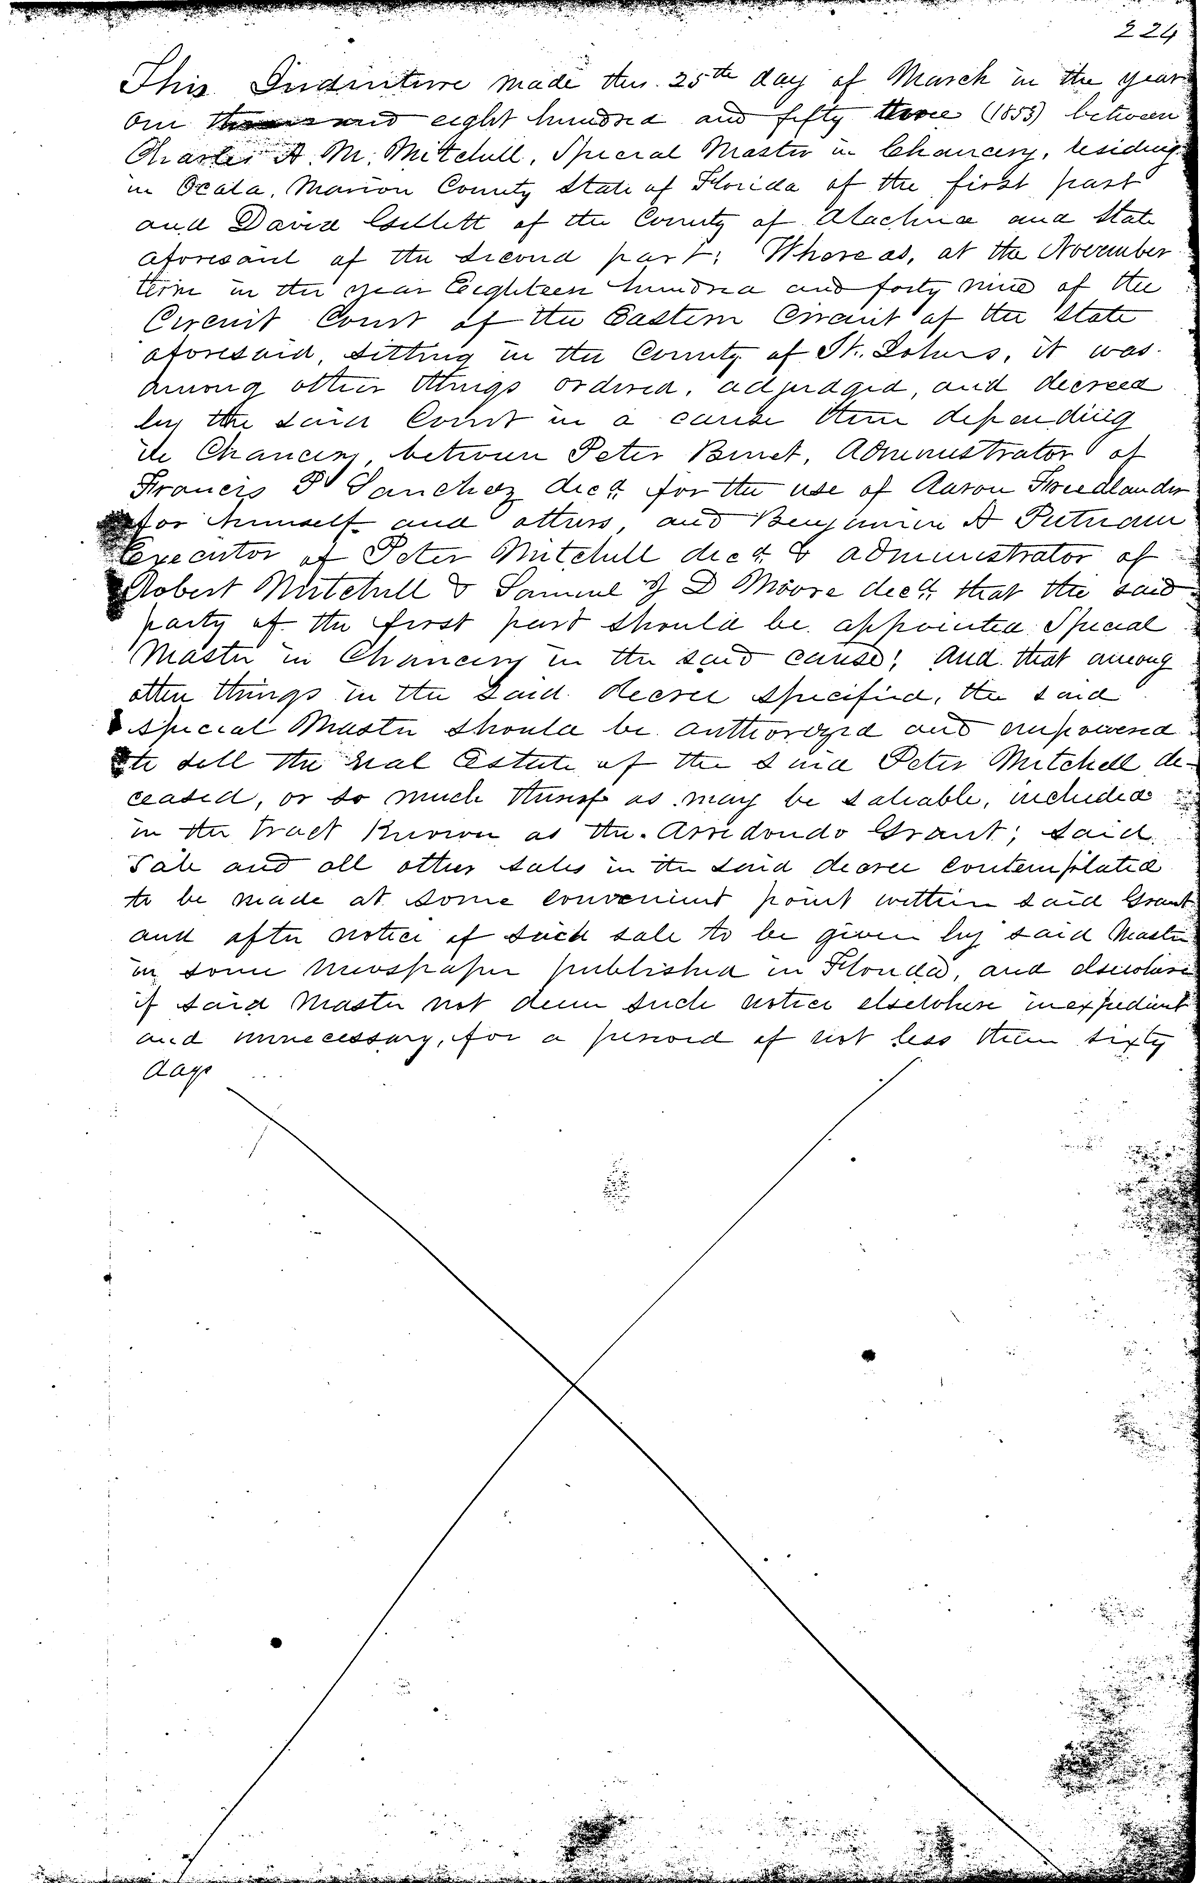 224
This Indenture made this 25th day of March in the year
one thousand eight hundred and fifty three (1853) between
Charles A. M. Mitchell, Special Master in Chancery, residing
in Ocala, Marion County State of Florida of the first part
and David Gillett of the County of Alachua and State
aforesaid of the second part: Whereas, at the November
term in the year Eighteen hundred and forty nine of the
Circuit Court of the Eastern Circuit of the State
aforesaid, sitting in the County of St. Johns, it was
among other things ordered, adjudged, and decreed
by the said Court in a cause then depending
in Chancery, between Peter Benet, Administrator of
Francis P Sanchez decd. for the use of Aaron Friedlander
for himself and others, and Benjamin A Putnam
Executor of Peter Mitchell decd. & administrator of
Robert Mitchell & Samuel D Moore decd. that the said
party of the first part should be appointed Special
Master in Chancery in the said cause; and that among
other things in the said decree specified, the said
special Master should be authorized and empowered
to sell the real Estate of the said Peter Mitchell de-
ceased, or so much thereof as may be saleable, included
in the tract Known as the Arredondo Grant; said
sale and all other sales in the said decree contemplated
to be made at some convenient point within said Grant
and after notice of such sale to be given by said Master
in some Newspaper published in Florida, and elsewhere
if said Master not deem such notice elsewhere inexpedient
and unnecessary, for a period of not less than sixty
days